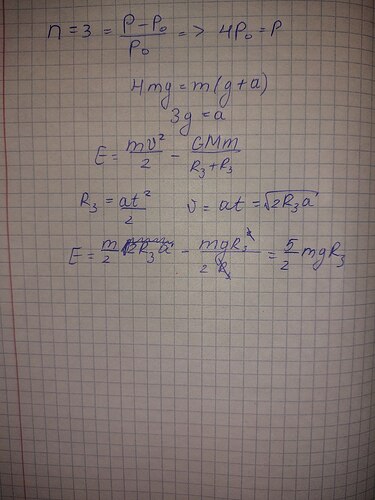 n = 3 = (P - P₀)/P₀ => 4P₀ = P
4mg = m(g + a)
3g = a
E = mυ²/2 - GMm/(R₃ + R₃)
R₃ = at²/2 υ = at = √(2R₃a)
E = m/2 2R₃a - mgR₃²/2R₃ = 5/2 mgR₃